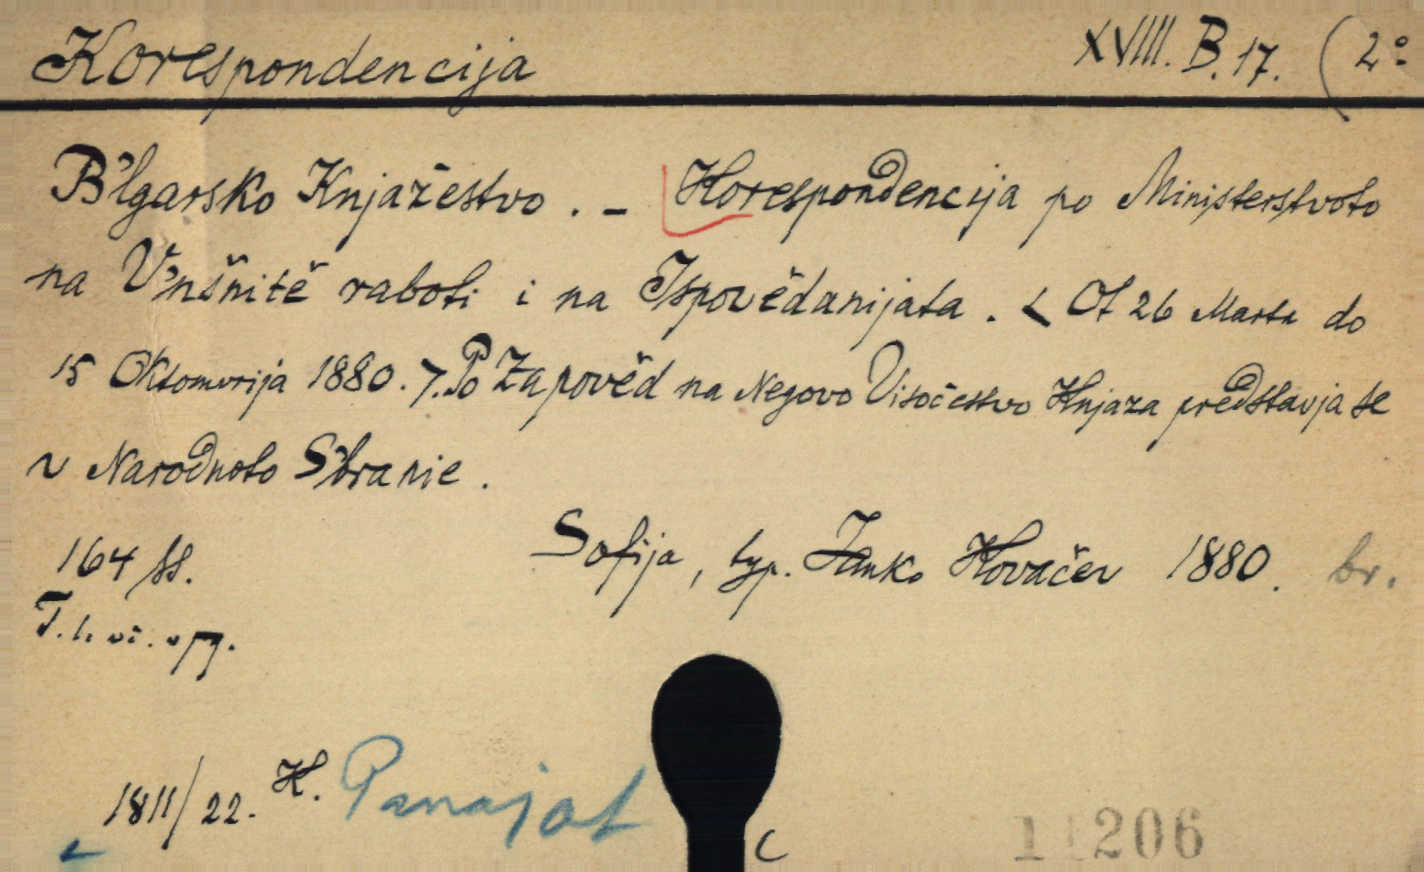 Korespondencija XVIII. B. 17. (2º
B'lgarsko Knjažestvo. - Korespondencija po Ministerstvoto
na V'nšnitě raboti i na Ispovědanijata. < Ot 26 Marta do
15 Oktomvrija 1880. >. Po Zapověd na Negovo Visočestvo Knjaza predstavja se
v Narodnoto S'branie.
164 ss.
Sofija, typ. Janko Kovačev 1880. br.
1811/22. K. Panajot
C
11206